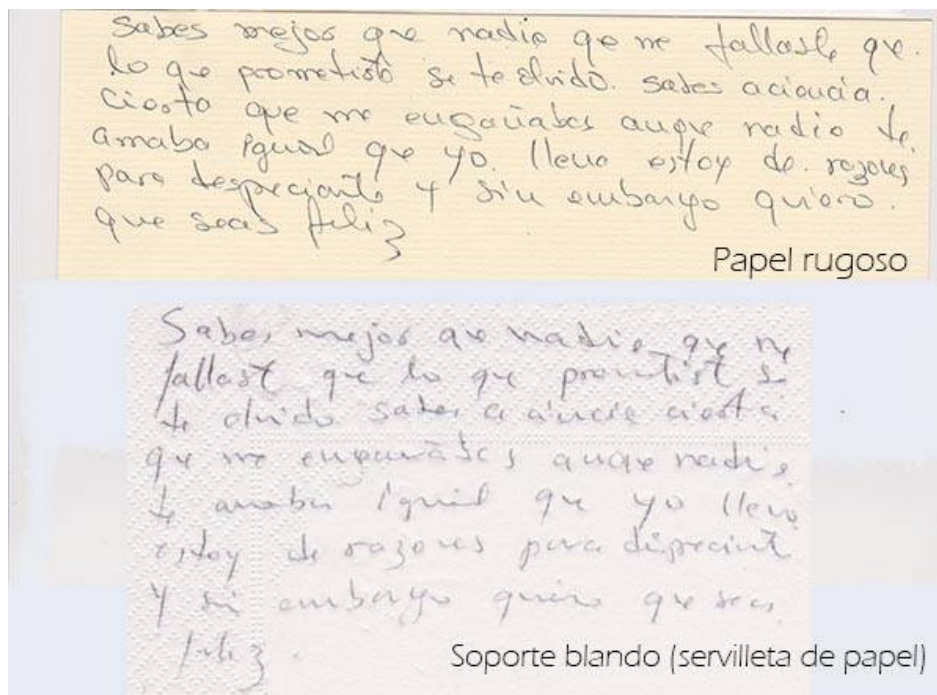 Sabes mejor que nadie que me fallaste que.
lo que prometiste se te olvido. sabes aciencia.
cierta que me engañabas auque nadie te
amaba igual que yo. llena estoy de. razones
para despreciarte y sin embargo quiero.
que seas feliz
Papel rugoso
Sabes mejor que nadie que me
fallast que lo que prometist se
te olvido sabes a ciencia cierta
que me engañabas auque nadie
te amaba igual que yo llena
estoy de razones para
y sin embargo quiero que seas
feliz.
Soporte blando (servilleta de papel)